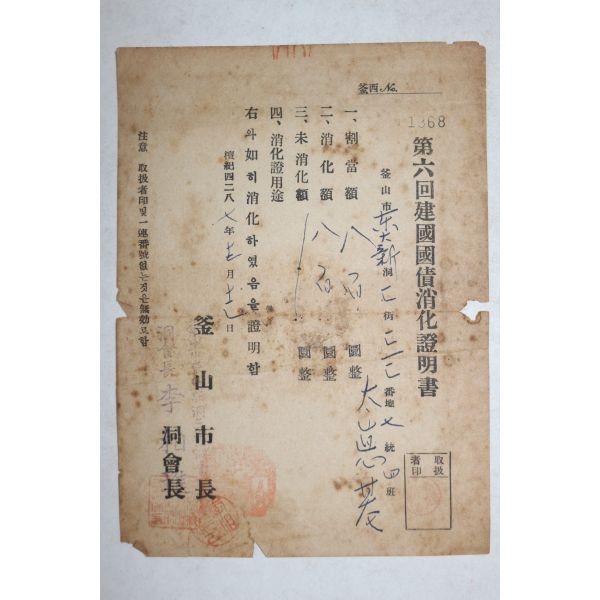 釜西 No.
1368
第六回建國國債消化證明書
釜山市東大新洞 街 番地 七 統 四 班
一、割當額 八百 圜整
二、消化額 八百 圜整
三、未消化額 圜整
四、消化證用途
右와如히消化하였음을證明함
檀紀四二八七年 月 日
釜山市長
洞會長
洞長 李
注意 取扱者印및一連番號없는것은無効로함
取扱者印